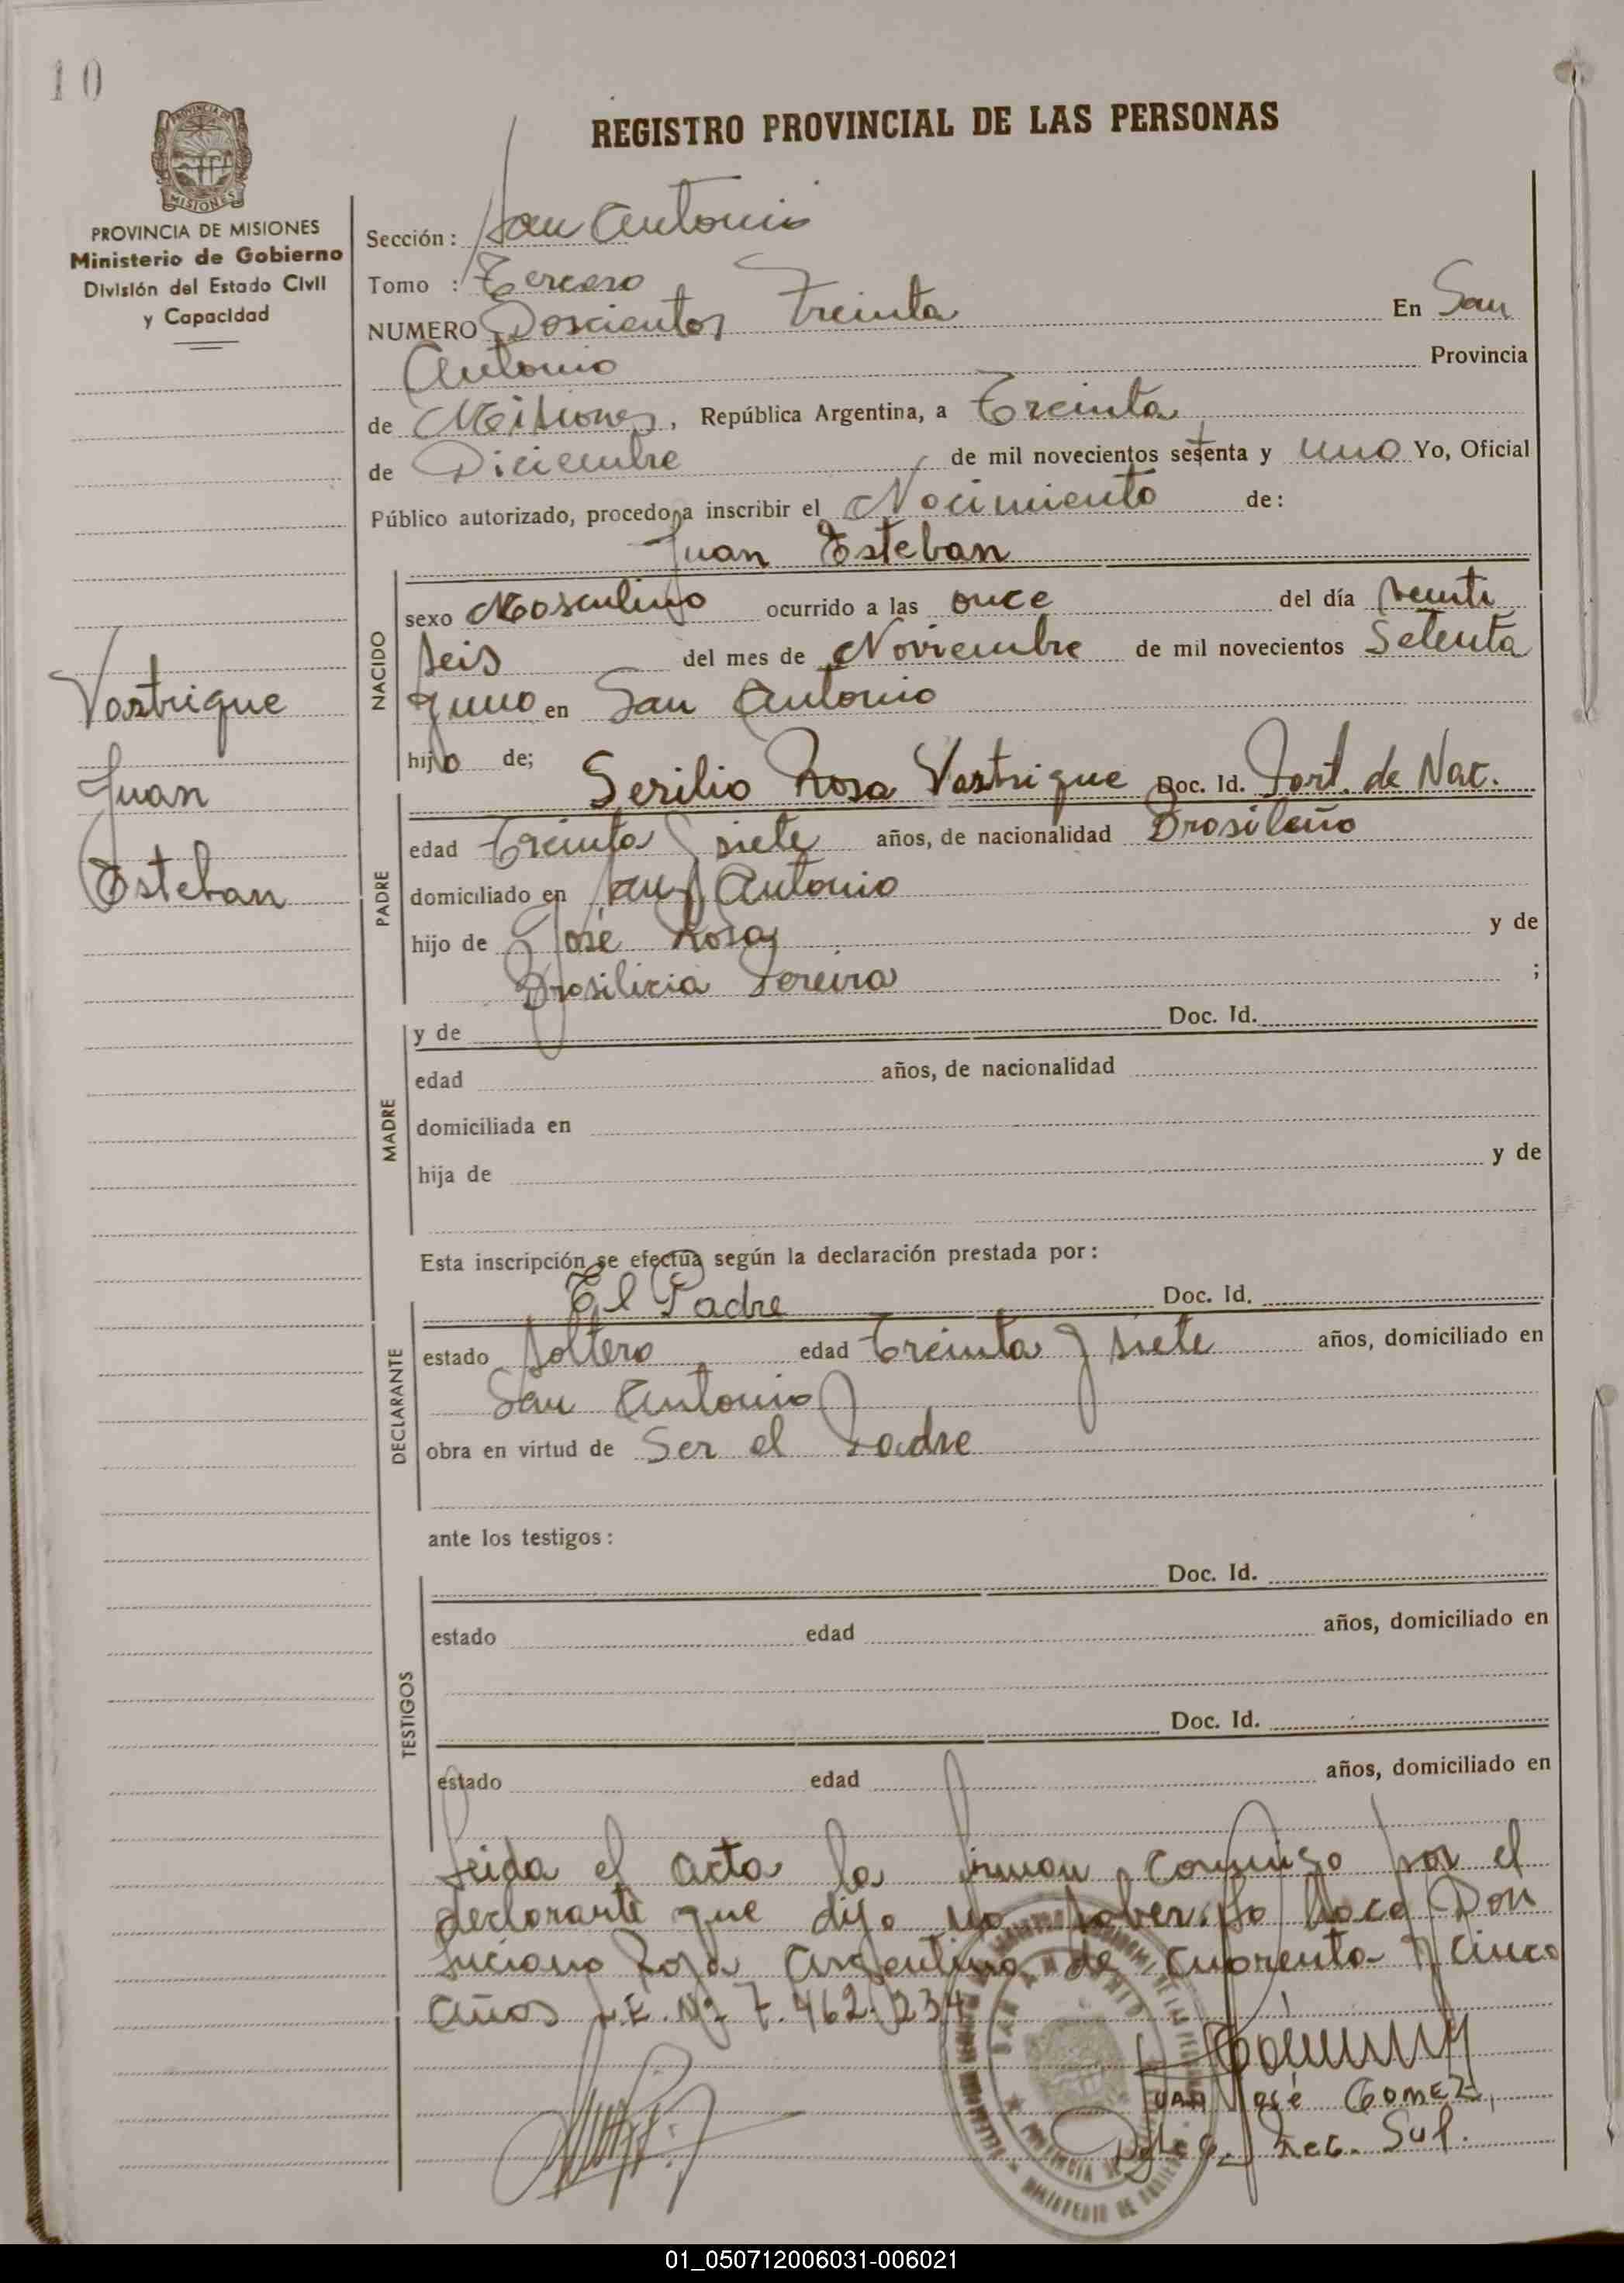 10
REGISTRO PROVINCIAL DE LAS PERSONAS
PROVINCIA DE MISIONES
Ministerio de Gobierno
División del Estado Civil
y Capacidad
Sección: San Antonio
Tomo: Tercero
NUMERO Doscientos Treinta En San
Antonio Provincia
de Misiones, República Argentina, a Treinta
de Diciembre de mil novecientos setenta y uno Yo, Oficial
Público autorizado, procedo a inscribir el Nacimiento de:
Juan Esteban
NACIDO
sexo Masculino ocurrido a las once del día veinti
seis del mes de Noviembre de mil novecientos Setenta
y uno en San Antonio
hijo de;
Vastrique
Juan
Esteban
PADRE
Serilio Rosa Vastrique Doc. Id. Part. de Nac.
edad Treinta y siete años, de nacionalidad Brasileño
domiciliado en San Antonio
hijo de José Rosa y de
Brasilicia Pereira ;
MADRE
y de Doc. Id.
edad años, de nacionalidad
domiciliada en
hija de y de
Esta inscripción se efectúa según la declaración prestada por:
DECLARANTE
El Padre Doc. Id.
estado Soltero edad Treinta y siete años, domiciliado en
San Antonio
obra en virtud de Ser el Padre
ante los testigos:
TESTIGOS
Doc. Id.
estado edad años, domiciliado en
Doc. Id.
estado edad años, domiciliado en
Leida el acta la firman conmigo por el
declarante que dijo no saber, lo hace Don
Luciano Roja Argentino de cuarenta y cinco
años L.E. Nº 7.462.234
JUAN José GOMEZ
Enc. Sup.
01_050712006031-006021